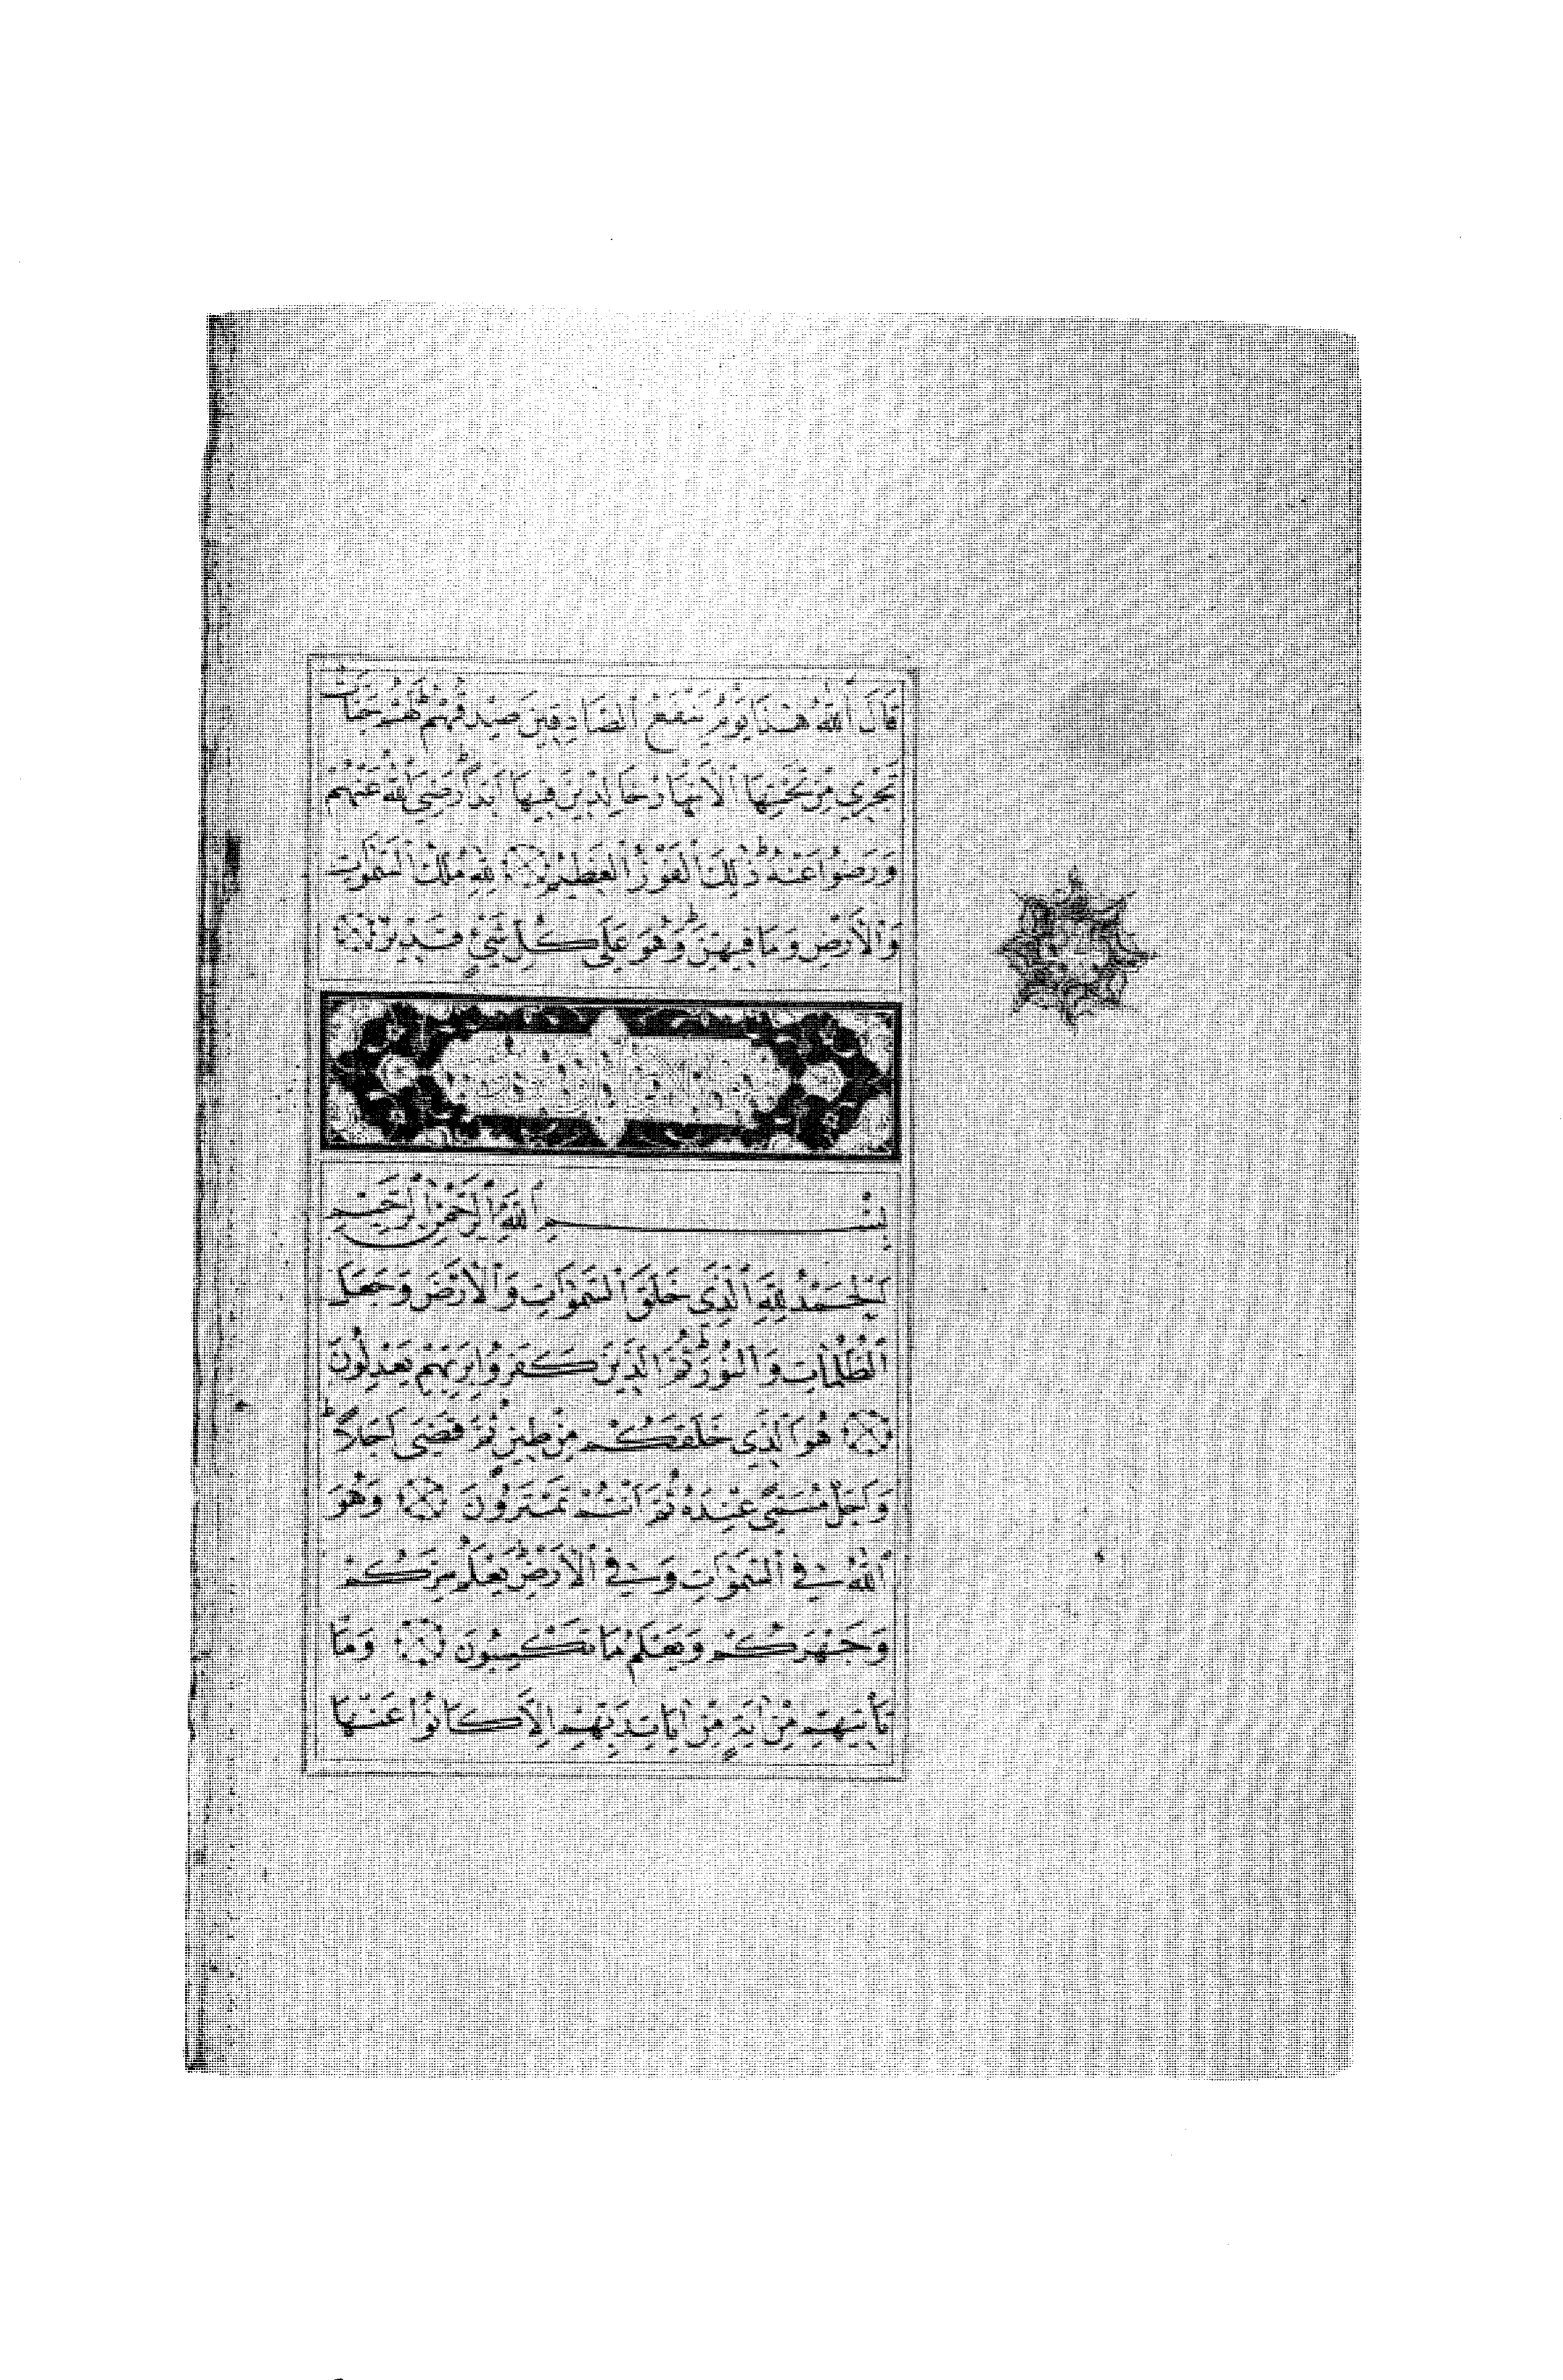 قَالَ اللهُ هٰذَا يَوْمُ يَنْفَعُ الصَّادِقِينَ صِدْقُهُمْ لَهُمْ جَنَّاتٌ
تَجْرِي مِنْ تَحْتِهَا الْأَنْهَارُ خَالِدِينَ فِيهَا أَبَداً رَضِيَ اللهُ عَنْهُمْ
وَرَضُوا عَنْهُ ذٰلِكَ الْفَوْزُ الْعَظِيمُ لِلّٰهِ مُلْكُ السَّمٰوَاتِ
وَالْأَرْضِ وَمَا فِيهِنَّ وَهُوَ عَلَى كُلِّ شَيْءٍ قَدِيرٌ
بِسْمِ اللهِ الرَّحْمٰنِ الرَّحِيمِ
اَلْحَمْدُ لِلّٰهِ الَّذِي خَلَقَ السَّمٰوَاتِ وَالْأَرْضَ وَجَعَلَ
الظُّلُمَاتِ وَالنُّورَ ثُمَّ الَّذِينَ كَفَرُوا بِرَبِّهِمْ يَعْدِلُونَ
هُوَ الَّذِي خَلَقَكُمْ مِنْ طِينٍ ثُمَّ قَضَى أَجَلاً
وَأَجَلٌ مُسَمًّى عِنْدَهُ ثُمَّ أَنْتُمْ تَمْتَرُونَ وَهُوَ
اللهُ فِي السَّمٰوَاتِ وَفِي الْأَرْضِ يَعْلَمُ سِرَّكُمْ
وَجَهْرَكُمْ وَيَعْلَمُ مَا تَكْسِبُونَ وَمَا
تَأْتِيهِمْ مِنْ اٰيَةٍ مِنْ اٰيَاتِ رَبِّهِمْ إِلَّا كَانُوا عَنْهَا